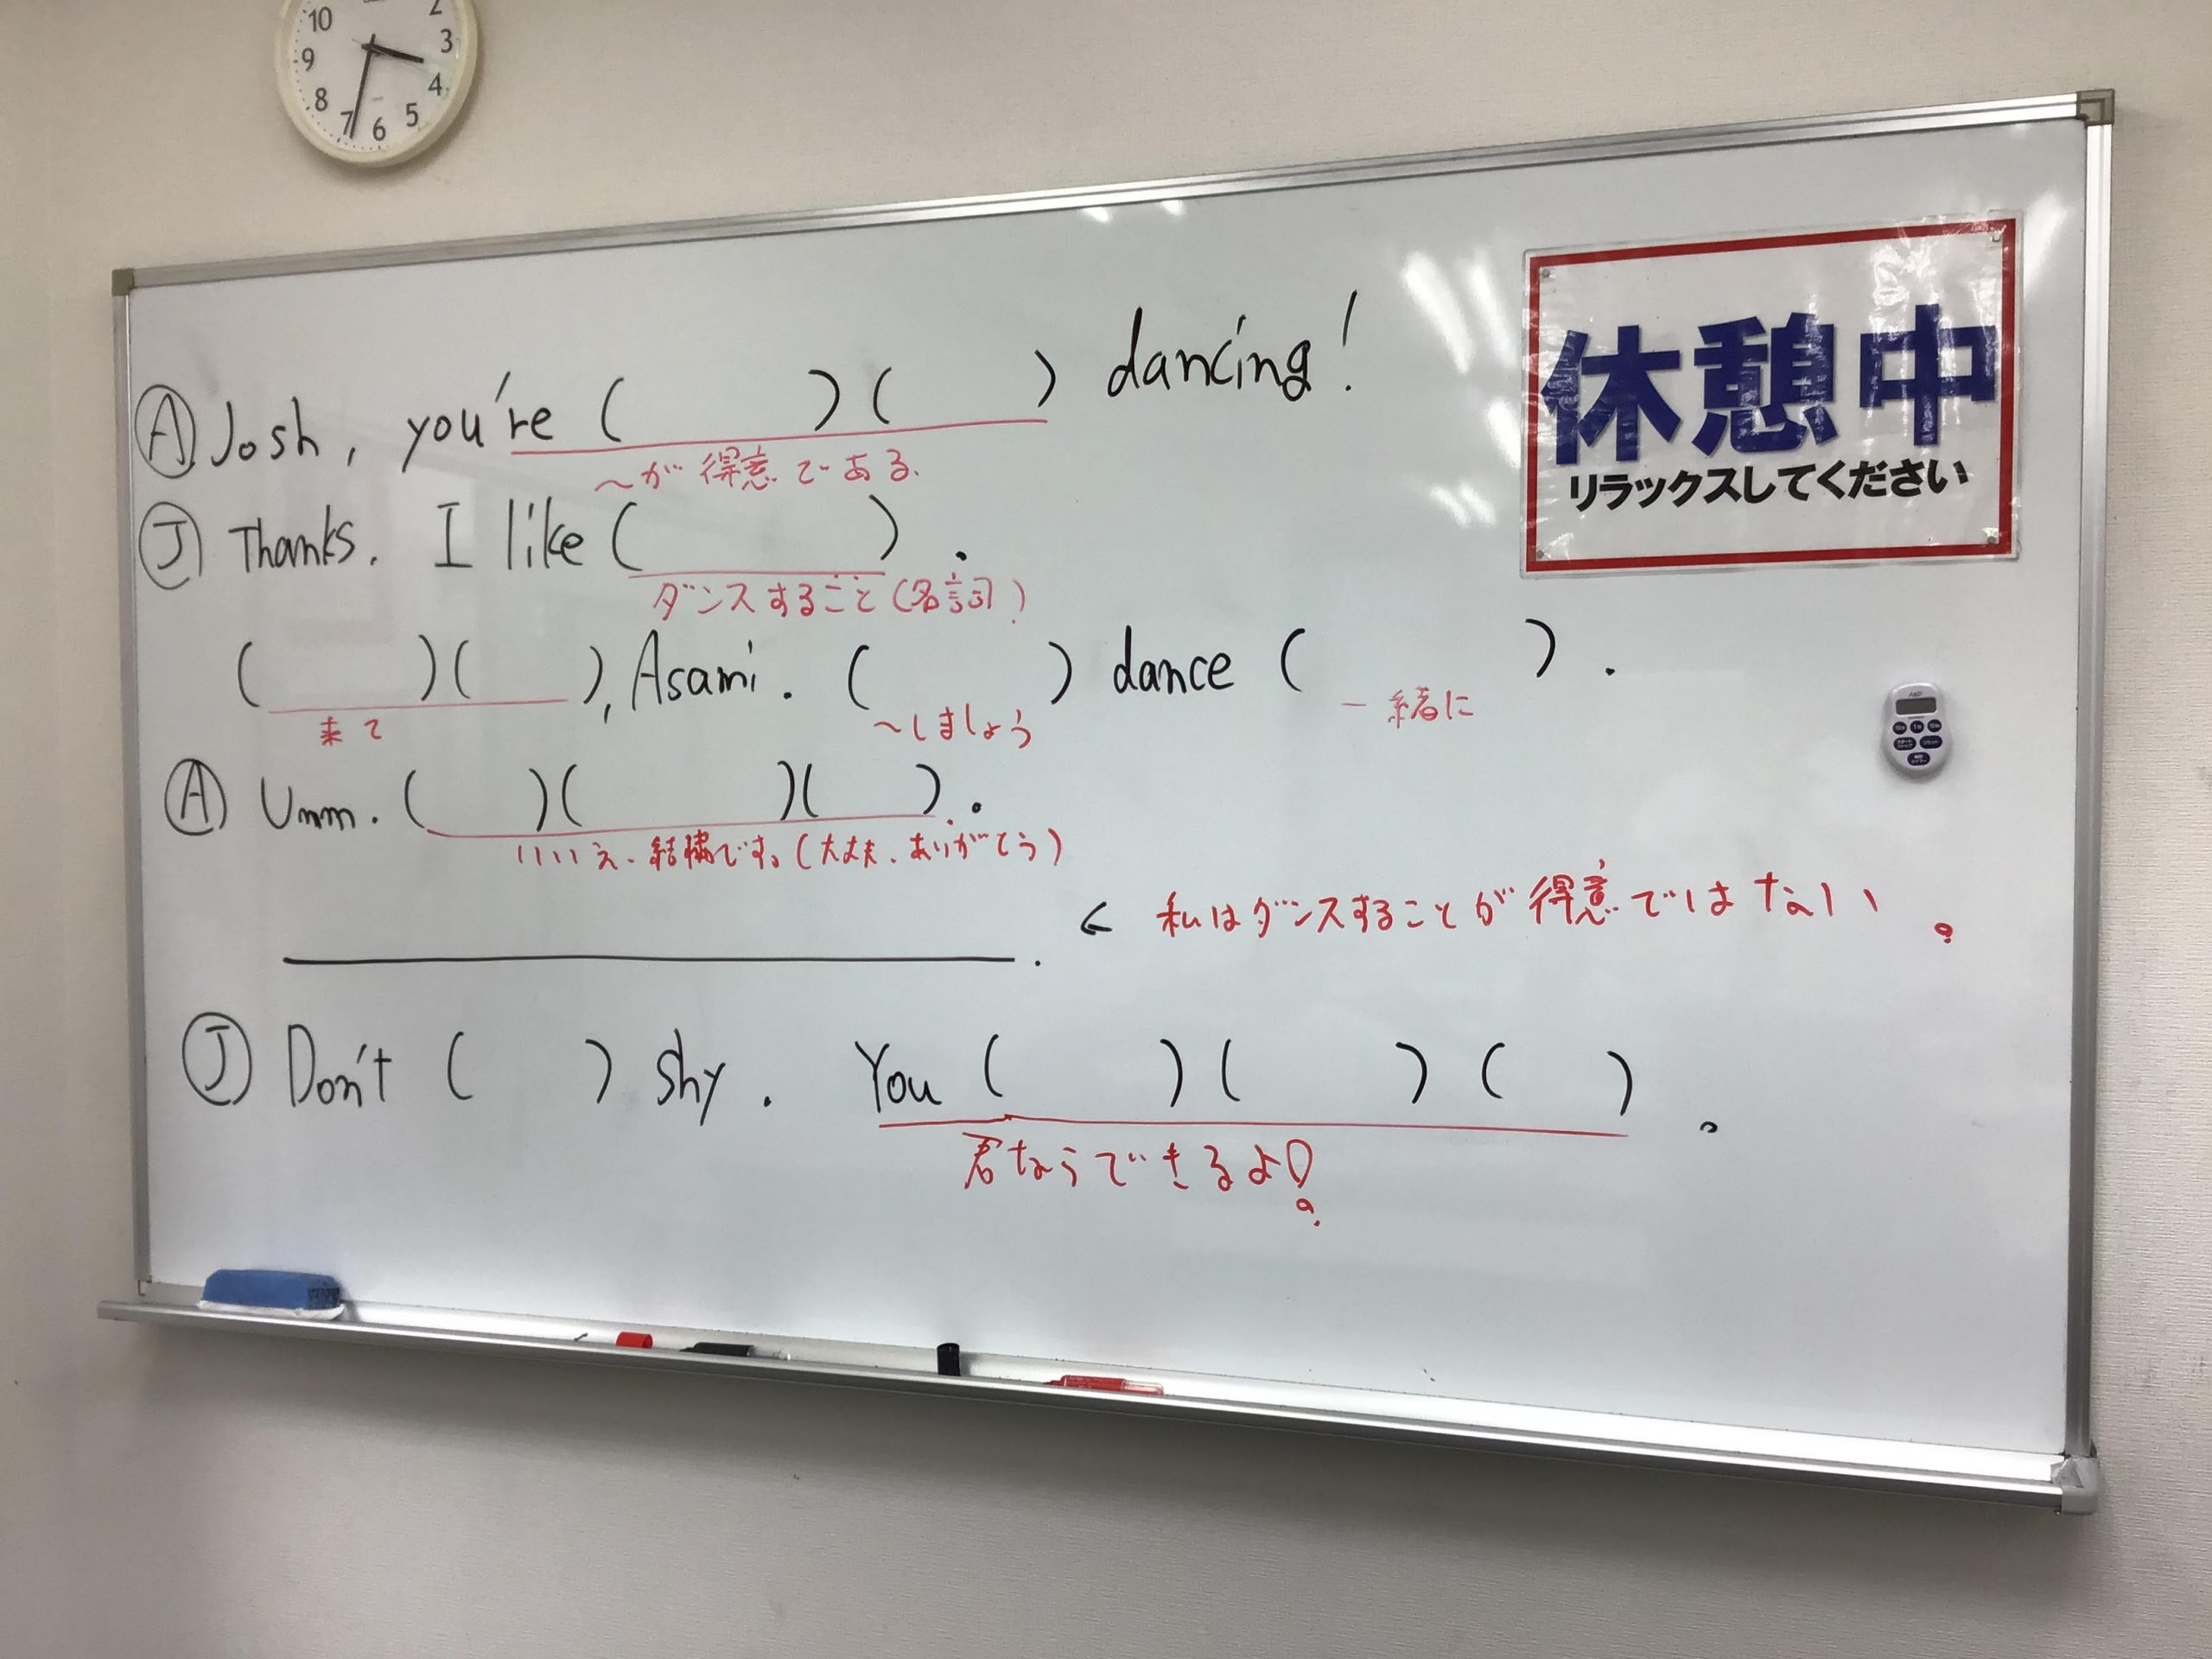 10 2
9 3
8 4
7 6 5
休憩中
リラックスしてください
Ⓐ Josh, you're (　　　)(　　　) dancing!
〜が得意である.
Ⓙ Thanks. I like (　　　).
ダンスすること(名詞)
(　　　)(　　　), Asami. (　　　) dance (　　　).
来て 〜しましょう 一緒に
Ⓐ Umm. (　　　)(　　　)(　　　).
いいえ、結構です。(大丈夫、ありがとう)
＿＿＿＿＿＿. ← 私はダンスすることが得意ではない。
Ⓙ Don't (　　　) shy. You (　　　)(　　　)(　　　).
君ならできるよ!